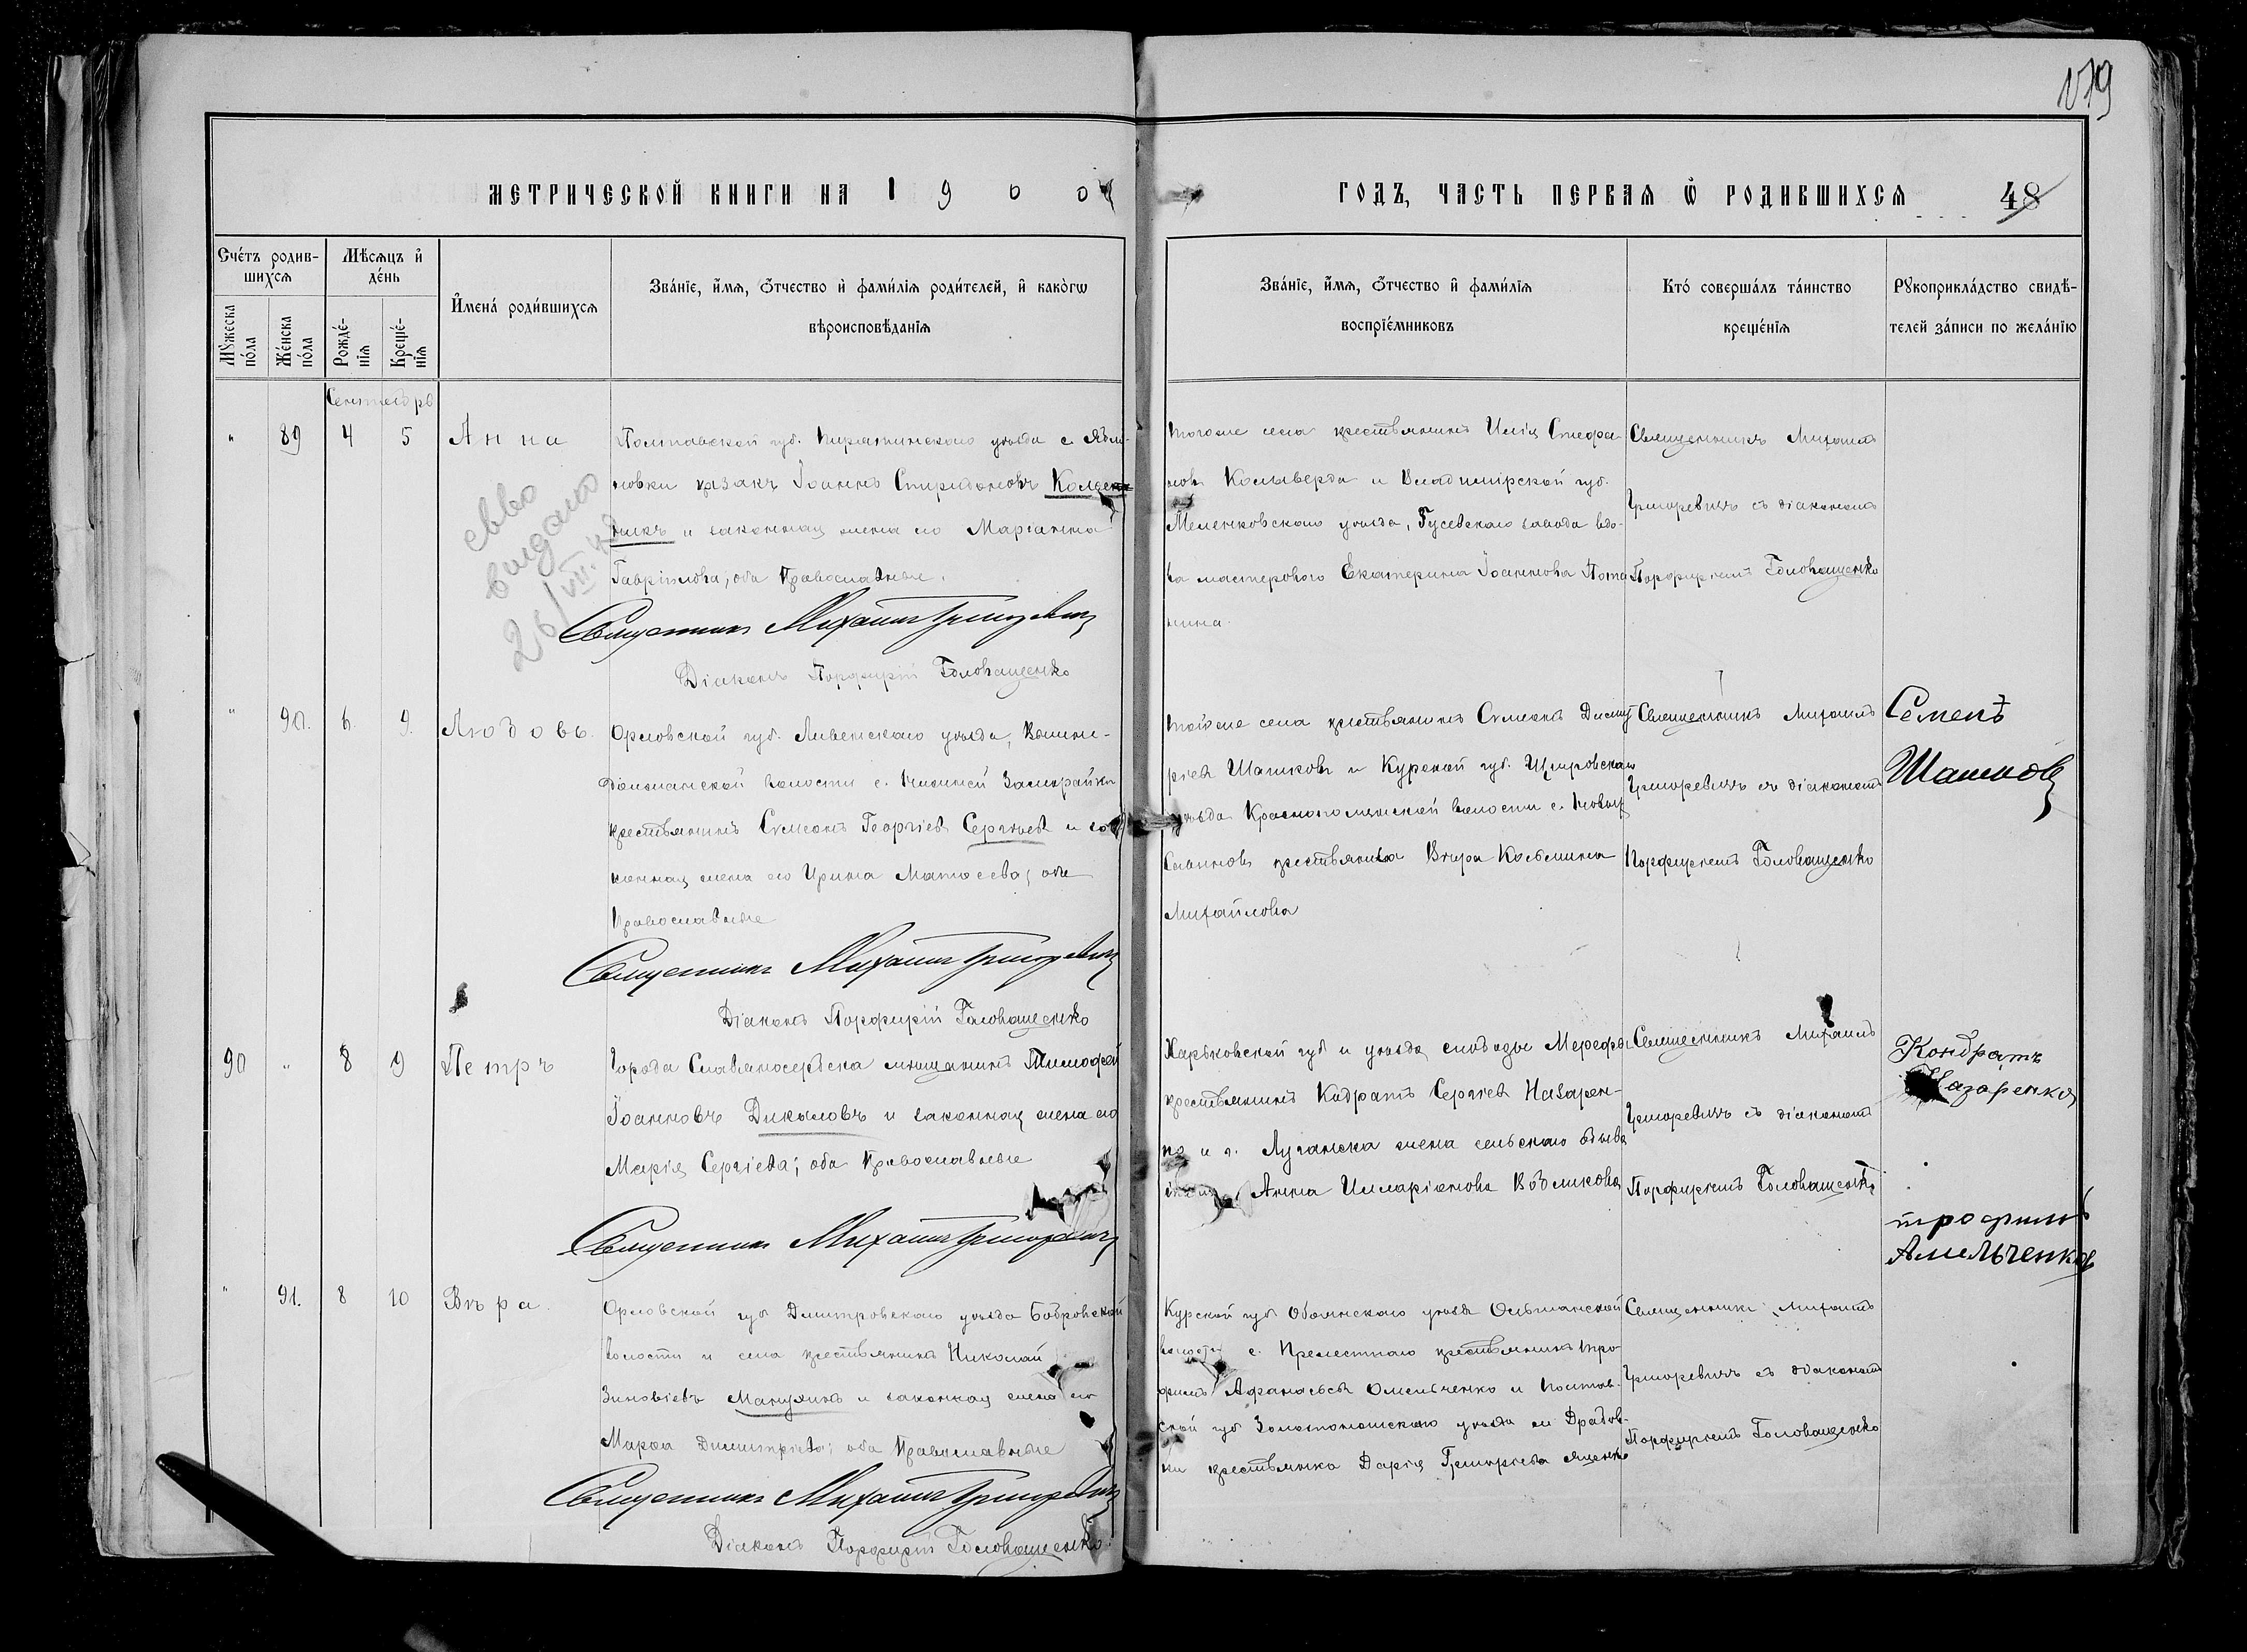 179
МЕТРИЧЕСКОЙ КНИГИ НА 1900
ГОДЪ, ЧАСТЬ ПЕРВАЯ Ѿ РОДИВШИХСЯ 48
Сче́тъ родив-
шихся
Мѣсяцъ и҆
де́нь
Мꙋ́жеска
по́ла
Же́нска
по́ла
Рожде́-
нїя
Креще́-
нїя
И҆мена́ роди́вшихся
Зва́нїе, и҆́мя, ѻ҆́тчество и҆ фами́лїя роди́телей, и҆ како́гѡ
вѣроисповѣ́данїя
Зва́нїе, и҆́мя, ѻ҆́тчество и҆ фами́лїя
воспрїе́мниковъ
Кто́ соверша́лъ та́инство
креще́нїя
Рꙋкоприкла́дство свидѣ́-
телей за́писи по жела́нїю
Сентябрь
" 89 4 5 Анна
Полтавской губ. Пирятинскаго уѣзда с. Ябло-
новки казакъ Іоаннъ Спиридоновъ
и законная жена его Маріанна
Гавріилова; оба Православные.
Священникъ Михаилъ Григоревичъ
Діаконъ Порфирій Головащенко
выдано
26/VII
тогоже села крестьянинъ Илія Стефа-
новъ Кольверда и Владимірской губ.
Меленковскаго уѣзда, Гусевскаго завода вдо-
ва мастерового Екатерина Іоаннова Пота
нина.
Священникъ Михаилъ
Григоревичъ съ діакономъ
Порфиріемъ Головащенко
" 90. 6. 9. Любовь.
Орловской губ. Ливенскаго уѣзда,
волости с. Нижней
крестьянинъ Сѵмеонъ Георгіевъ Сергѣевъ и за
конная жена его Ирина Матѳеева; оба
Православные
Священникъ Михаилъ Григоревичъ
Діаконъ Порфирій Головащенко
тойже села крестьянинъ Сѵмеонъ Димит
ріевъ Шашковъ и Курской губ. Щигровскаго
уѣзда волости с.
крестьянка Вѣра Косьмина
Михайлова
Священникъ Михаилъ
Григоревичъ съ діакономъ
Порфиріемъ Головащенко
Семенъ
Шашковъ
90 " 8 9 Петръ
Города Славяносербска мѣщанинъ Тимофей
Іоанновъ Дикыловъ и законная жена его
Марія Сергіева; оба Православные
Священникъ Михаилъ Григоревичъ
Харьковской губ и уѣзда слободы Мерефы
крестьянинъ Кодратъ Сергіевъ Назарен-
ко и г. Луганска жена сельскаго обыва
Анна Илларіонова
Священникъ Михаилъ
Григоревичъ съ діакономъ
Порфиріемъ Головащенко
Кондратъ
Назаренко
" 91. 8 10 Вѣра.
Орловской губ Дмитровскаго уѣзда Бобровской
волости и села крестьянинъ Николай
Зиновіевъ Манухинъ и законная жена его
Марѳа Димитріева; оба Православные
Священникъ Михаилъ Григоревичъ
Діаконъ Порфирій Головащенко.
Курской губ Обоянскаго уѣзда Ольшанской
волости с. Прелестнаго крестьянинъ Тро-
фимъ Афанасьевъ Омельченко и Полтав-
ской губ Золотоношскаго уѣзда м Драбов-
ки крестьянка Дарія Григоріева
Священникъ Михаилъ
Григоревичъ съ діакономъ
Порфиріемъ Головащенко
трофимъ
Амельченковъ